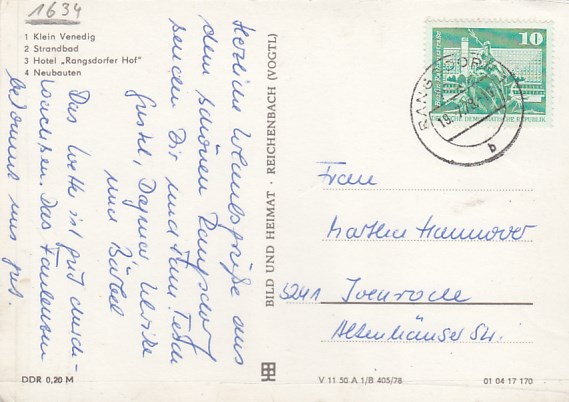 1634
1 Klein Venedig
2 Strandbad
3 Hotel „Rangsdorfer Hof"
4 Neubauten
Herzliche Urlaubsgrüße aus
dem schönen Rangsdorf
senden Dir und
Gustel, Dagmar Ulrike
und Bärbel
Das
wachsen. Das Faulenzen
bekommt uns gut.
DDR 0,20 M
BILD UND HEIMAT · REICHENBACH (VOGTL)
10
DEUTSCHE DEMOKRATISCHE REPUBLIK
RANGSDORF
b
Frau
Martha Hannover
3241 Ivenrode
Altenhäuser Str.
V 11 50 A 1/B 405/78
01 04 17 170